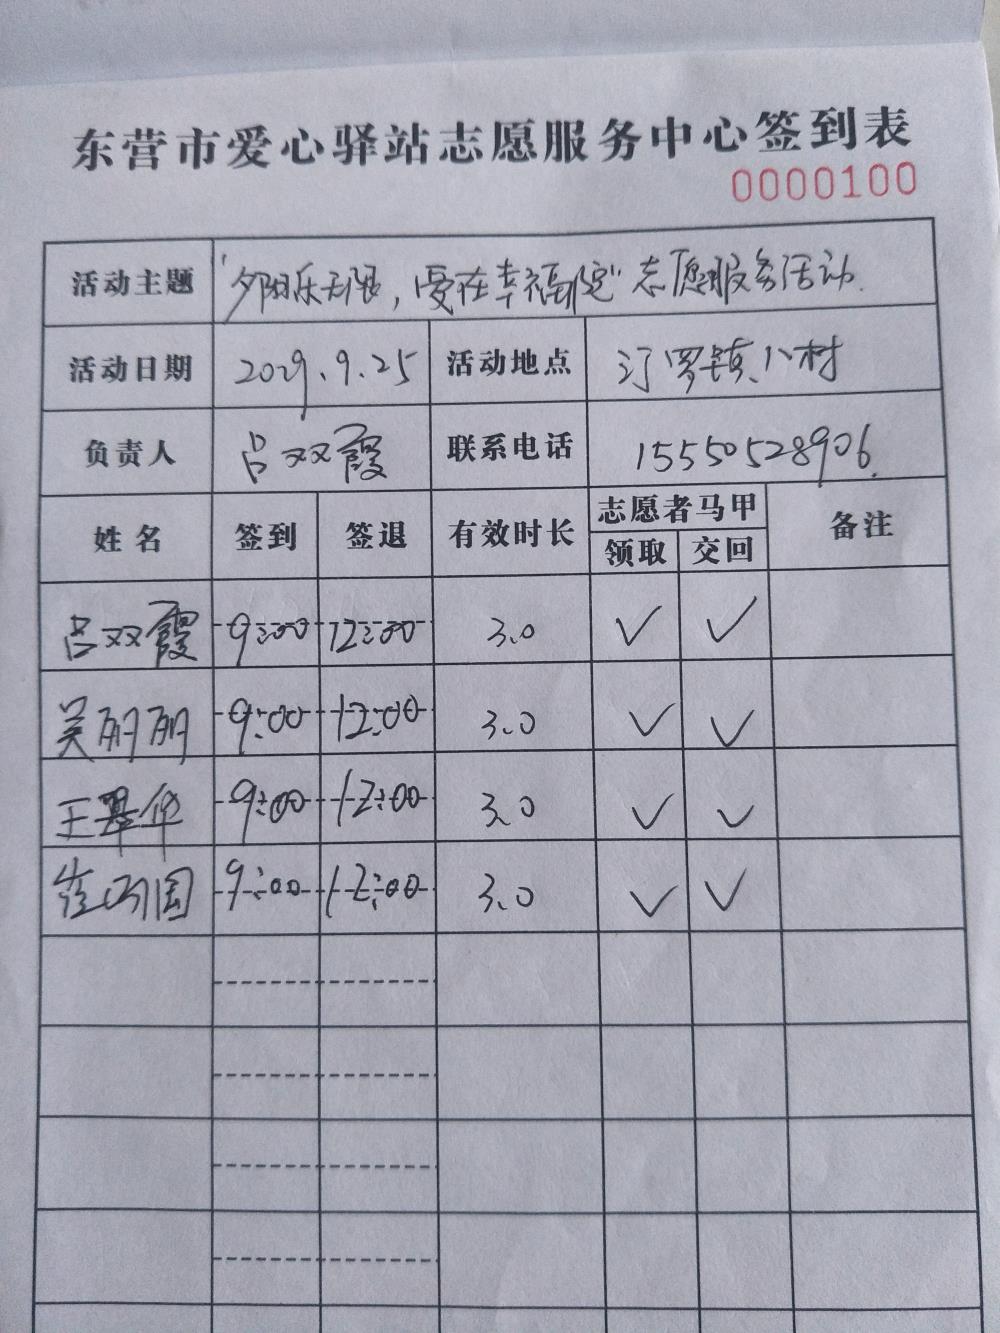 东营市爱心驿站志愿服务中心签到表
0000100
活动主题 "夕阳乐无限，爱在幸福院"志愿服务活动.
活动日期 2029.9.25 活动地点 汀罗镇八村
负责人 吕双霞 联系电话 15550528906.
姓名 签到 签退 有效时长 志愿者马甲 领取 交回 备注
吕双霞 9:00 12:00 3.0 ✓ ✓
吴丽丽 9:00 12:00 3.0 ✓ ✓
王翠华 9:00 12:00 3.0 ✓ ✓
崔丙国 9:00 12:00 3.0 ✓ ✓